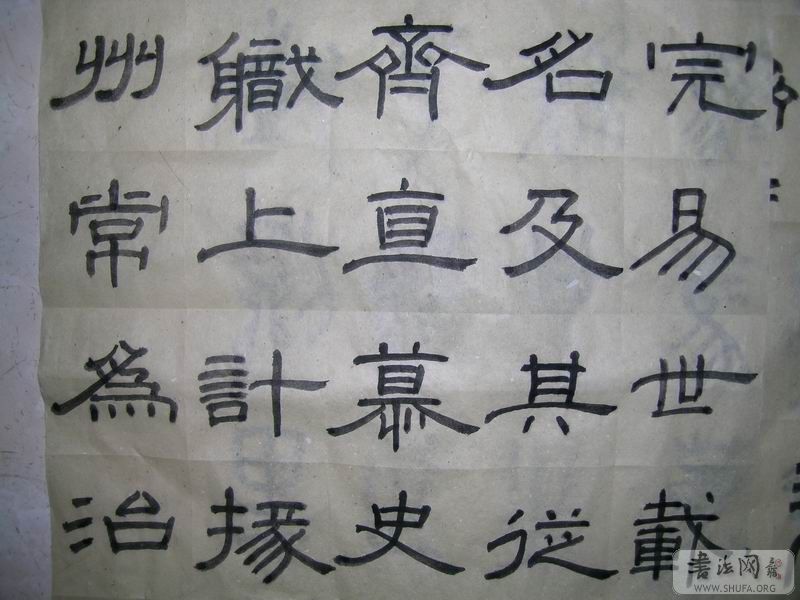 完易世載
名及其從
齊直慕史
職上計掾
州常為治
書法网
WWW.SHUFA.ORG